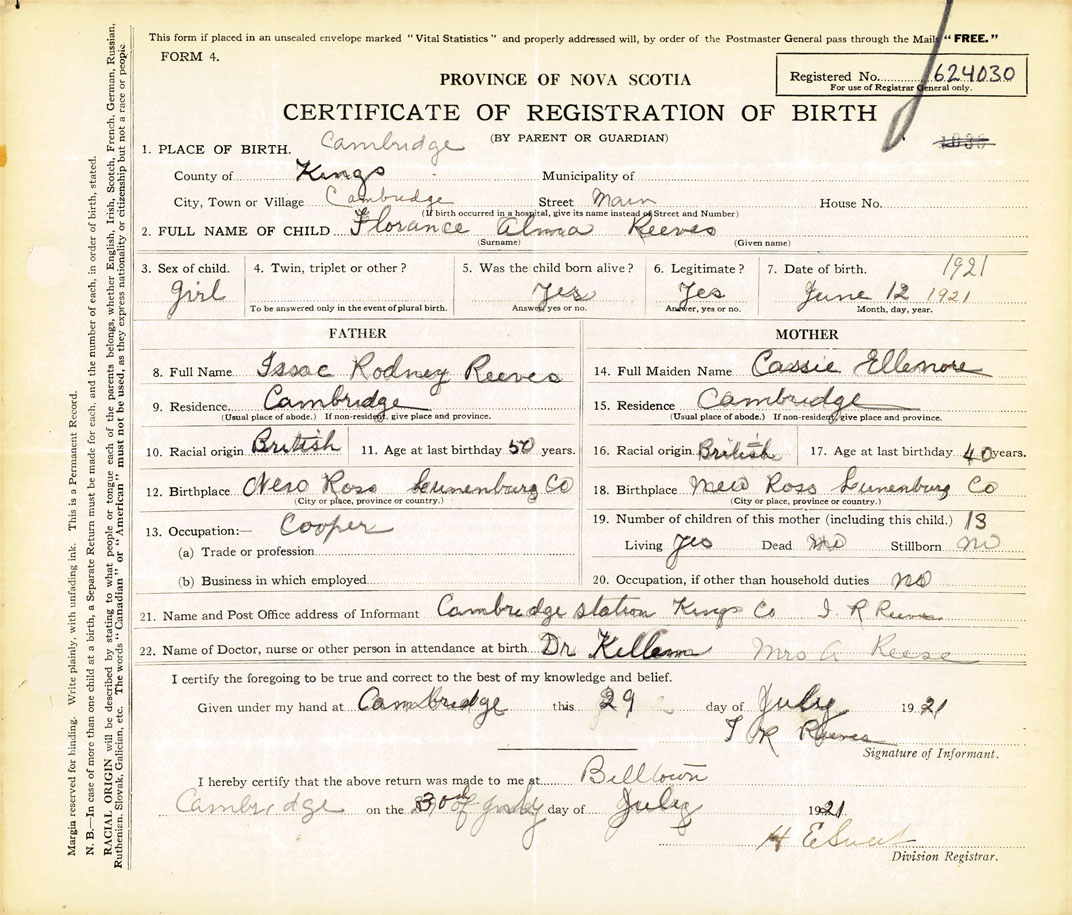 This form if placed in an unsealed envelope marked "Vital Statistics" and properly addressed will, by order of the Postmaster General pass through the Mails "FREE."
FORM 4.
Registered No. 624030
For use of Registrar General only.
PROVINCE OF NOVA SCOTIA
CERTIFICATE OF REGISTRATION OF BIRTH
(BY PARENT OR GUARDIAN)
1. PLACE OF BIRTH. Cambridge
County of Kings Municipality of
City, Town or Village Cambridge Street Main House No.
(If birth occurred in a hospital, give its name instead of Street and Number)
2. FULL NAME OF CHILD Florance Alma Reeves
(Surname) (Given name)
3. Sex of child. 4. Twin, triplet or other? 5. Was the child born alive? 6. Legitimate? 7. Date of birth. 1921
Girl Yes Yes June 12 1921
To be answered only in the event of plural birth. Answer, yes or no. Answer, yes or no. Month, day, year.
FATHER MOTHER
8. Full Name Issac Rodney Reeves 14. Full Maiden Name Cassie Ellenore
9. Residence Cambridge 15. Residence Cambridge
(Usual place of abode.) If non-resident, give place and province. (Usual place of abode.) If non-resident, give place and province.
10. Racial origin British 11. Age at last birthday 50 years. 16. Racial origin British 17. Age at last birthday 40 years.
12. Birthplace New Ross Lunenburg Co 18. Birthplace New Ross Lunenburg Co
(City or place, province or country.) (City or place, province or country.)
13. Occupation:— Cooper 19. Number of children of this mother (including this child.) 13
(a) Trade or profession Living Yes Dead No Stillborn no
(b) Business in which employed 20. Occupation, if other than household duties no
21. Name and Post Office address of Informant Cambridge station Kings Co I. R Reeves
22. Name of Doctor, nurse or other person in attendance at birth Dr Mrs A Reese
I certify the foregoing to be true and correct to the best of my knowledge and belief.
Given under my hand at Cambridge this 29 day of July 1921
I R Reeves
Signature of Informant.
I hereby certify that the above return was made to me at Billtown
Cambridge on the 30 of July day of July 1921
H E
Division Registrar.
Margin reserved for binding. Write plainly, with unfading ink. This is a Permanent Record.
N. B.—In case of more than one child at a birth, a Separate Return must be made for each, and the number of each, in order of birth, stated.
RACIAL ORIGIN will be described by stating to what people or tongue each of the parents belongs, whether English, Irish, Scotch, French, German, Russian,
Ruthenian, Slovak, Galician, etc. The words "Canadian" or "American" must not be used, as they express nationality or citizenship but not a race or people